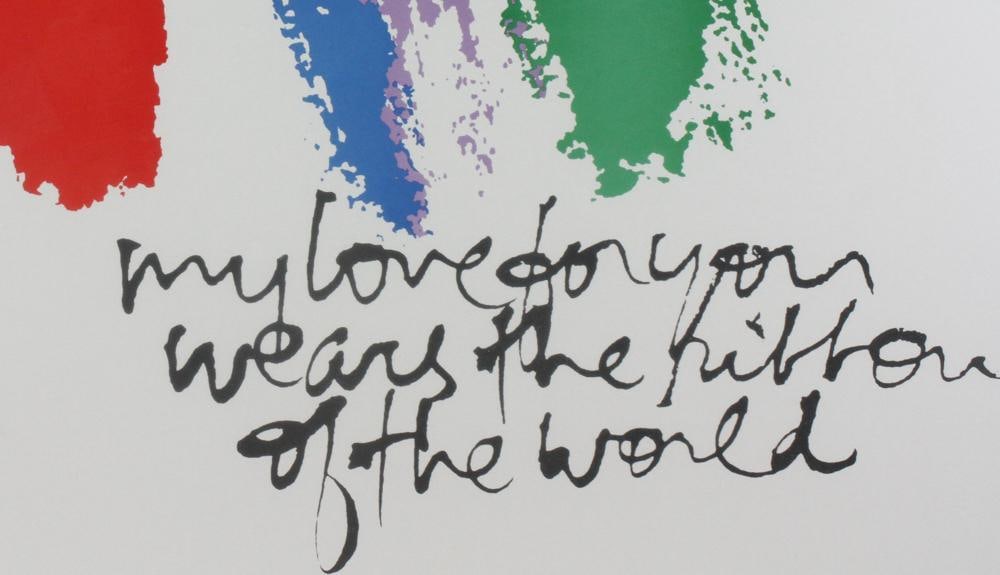 my love for you
wears the ribbon
of the world